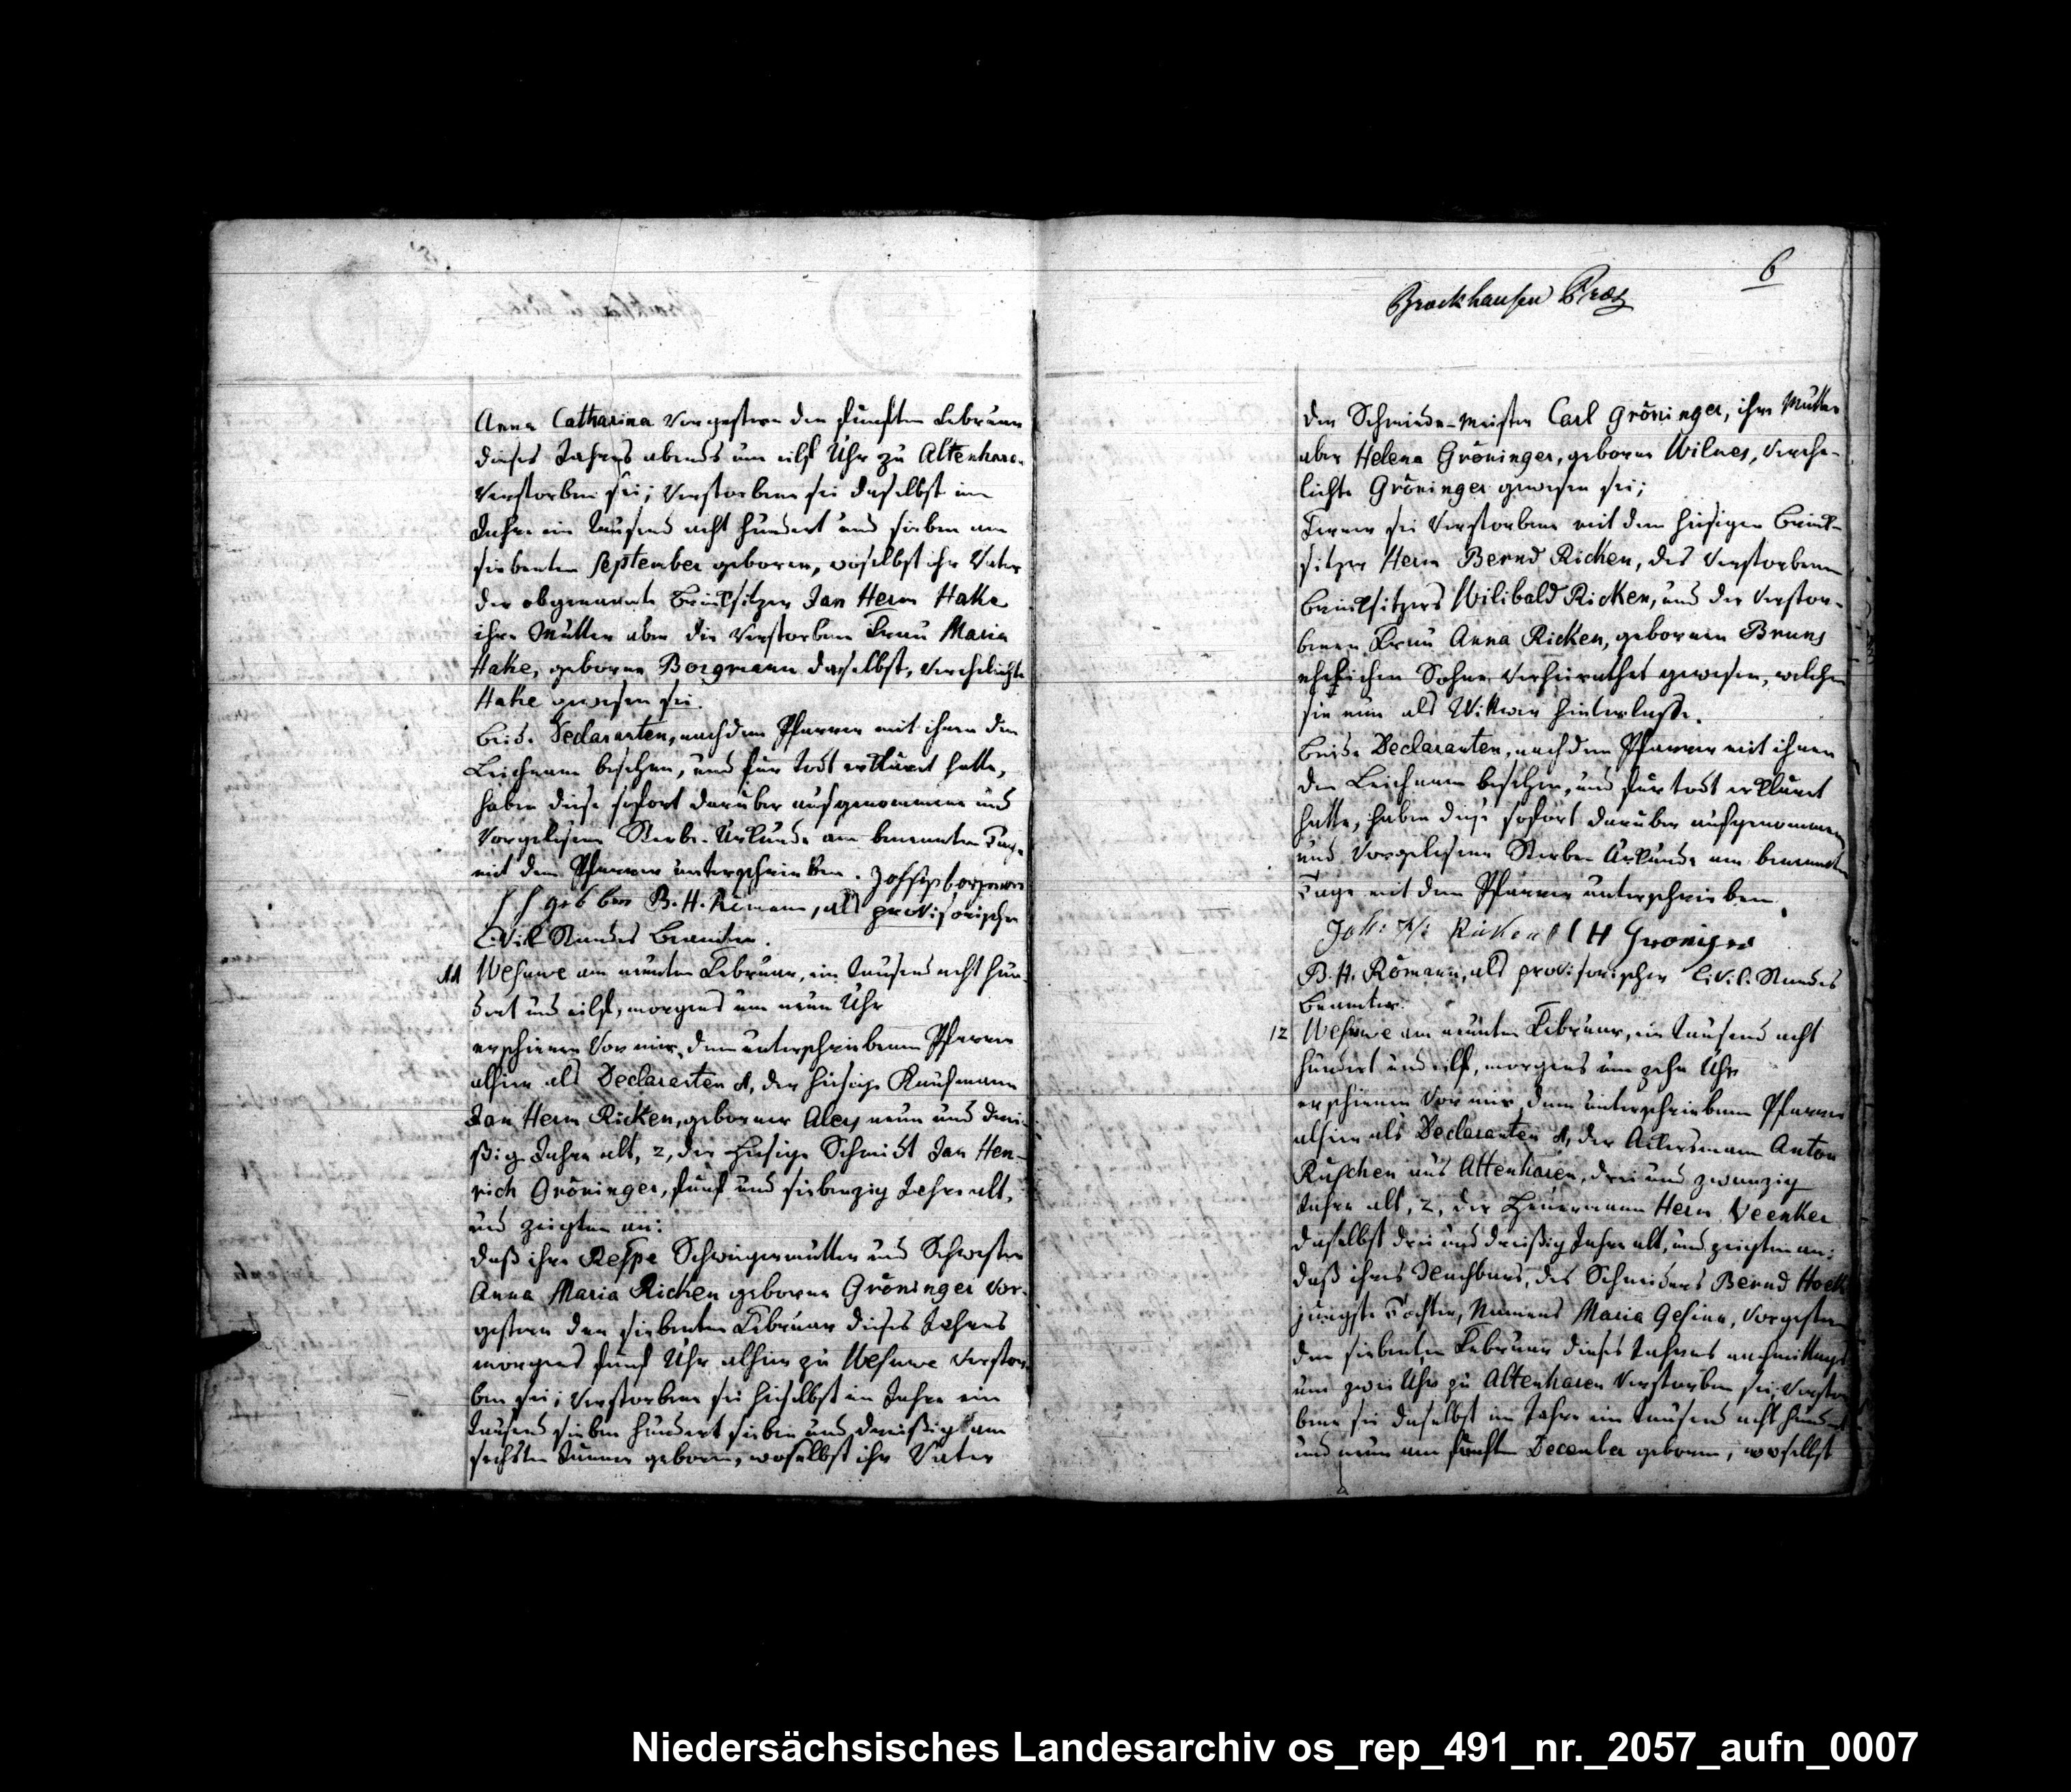 6
Brockhausen Præs
Anna Catharina vorgestern den fünften Februar
dieses Jahres abends um eilf Uhr zu Altenharen
verstorben sei; Verstorbene sei daselbst im
Jahre ein tausend acht hundert und sieben am
siebenten September geboren, woselbst ihr Vater
der obgenannte Brinksitzer Jan Herm Hake
ihre Mutter aber die verstorbene Frau Maria
Hake, geborne Borgmann daselbst, verehelichte
Hake gewesen sei.
Beide Declaranten, nachdem Pfarrer mit ihnen den
Leichnam besehen, und für todt erklärt hatte,
haben diese sofort darüber aufgenommene und
vorgelesene Sterbe-Urkunde am benannten Tage
mit dem Pfarrer unterschrieben.
B. H. Römann, als provisorischer
Civil-Standes Beamter.
11 Wesuwe am neunten Februar, ein tausend acht hun-
dert und eilf, morgens um neun Uhr
erschienen vor mir, dem unterschriebenen Pfarrer
alhier als Declaranten 1, der hiesige Kaufmann
Jan Herm Ricken, geborner Alers neun und drei-
ßig Jahre alt, 2, der hiesige Schmidt Jan Hen-
rich Gröninger, fünf und siebenzig Jahre alt,
und zeigten an:
daß ihre Respe Schwiegermutter und Schwester
Anna Maria Ricken geborne Gröninger vor-
gestern den siebenten Februar dieses Jahres
morgens fünf Uhr alhier zu Wesuwe verstor-
ben sei; Verstorbene sei hieselbst im Jahre ein
tausend sieben hundert sieben und dreißig am
sechsten Januar geboren, woselbst ihr Vater
der Schmiede-Meister Carl Gröninger, ihre Mutter
aber Helena Gröninger, geborne Wilnes, verehe-
lichte Gröninger gewesen sei;
Ferner sei Verstorbene mit dem hiesigen Brink-
sitzer Herm Bernd Ricken, des verstorbenen
Brinksitzers Wilibald Ricken, und der verstor-
benen Frau Anna Ricken, gebornen Bruns
ehelichen Sohne verheirathet gewesen, welchen
sie nun als Witwer hinterlasse.
Beide Declaranten, nachdem Pfarrer mit ihnen
den Leichnam besehen, und für todt erklärt
hatte, haben diese sofort darüber aufgenommene
und vorgelesene Sterbe Urkunde am benannten
Tage mit dem Pfarrer unterschrieben.
Joh. Ricken J H Groniger
B. H. Römann, als provisorischer Civil-Standes
Beamter.
12 Wesuwe am neunten Februar, ein tausend acht
hundert und eilf, morgens um zehn Uhr
erschienen vor mir, dem unterschriebenen Pfarrer
alhier als Declaranten 1, der Ackersmann Anton
Ruschen aus Altenharen, drei und zwanzig
Jahre alt, 2, der Heuermann Herm Veenker
daselbst drei und dreißig Jahre alt, und zeigten an:
daß ihres Nachbars, des Schneiders Bernd Hoek
jüngste Tochter, Namens Maria Gesina, vorgestern
den siebenten Februar dieses Jahres nachmittags
um zwei Uhr zu Altenharen verstorben sei; Verstor-
bene sei daselbst im Jahre ein tausend acht hundert
und neun am fünften December geboren, woselbst
Niedersächsisches Landesarchiv os_rep_491_nr._2057_aufn_0007